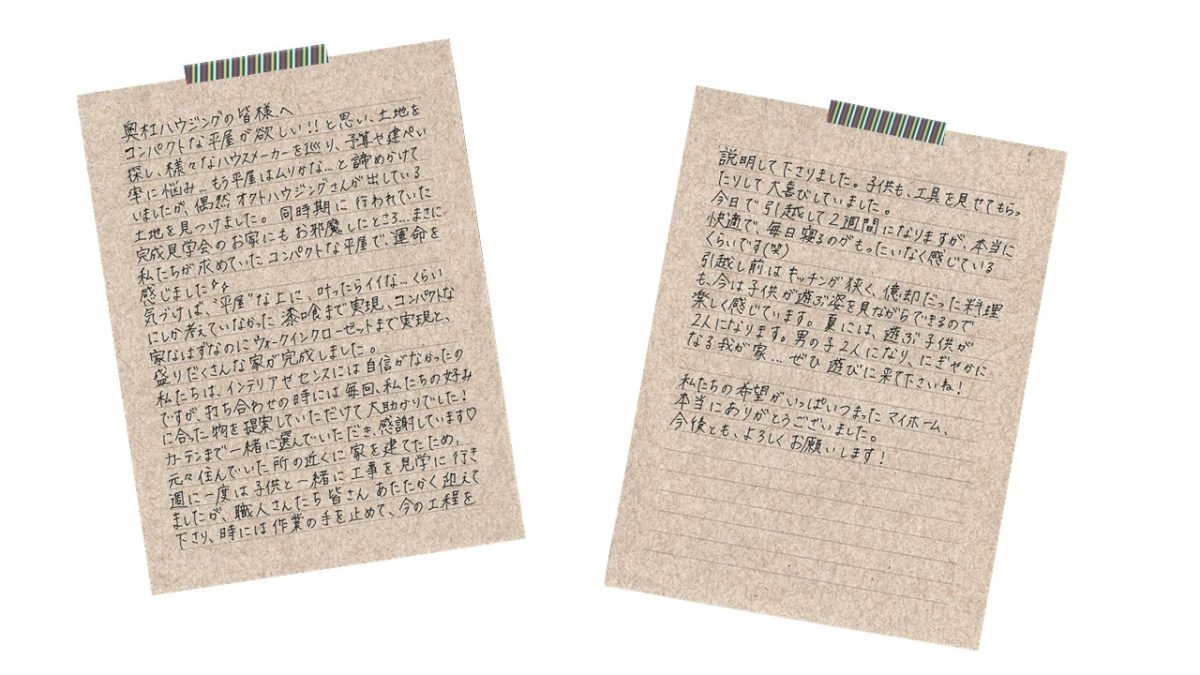 奥杜ハウジングの皆様へ
コンパクトな平屋が欲しい!!と思い、土地を
探し、様々なハウスメーカーを巡り、予算や建ぺい
率に悩み…もう平屋はムリかな…と諦めかけて
いましたが、偶然オクトハウジングさんが出している
土地を見つけました。同時期に行われていた
完成見学会のお家にもお邪魔したところ…まさに
私たちが求めていたコンパクトな平屋で、運命を
感じました
気づけば、"平屋"な上に、叶ったらイイな…くらい
にしか考えていなかった漆喰まで実現、コンパクトな
家なはずなのにウォークインクローゼットまで実現と、
盛りだくさんな家が完成しました。
私たちは、インテリアやセンスには自信がなかったの
ですが、打ち合わせの時には毎回、私たちの好み
に合った物を提案していただけて大助かりでした!
カーテンまで一緒に選んでいただき、感謝しています♡
元々住んでいた所の近くに家を建てたため、
週に一度は子供と一緒に工事を見学に行き
ましたが、職人さんたち皆さんあたたかく迎えて
下さり、時には作業の手を止めて、今の工程を
説明して下さりました。子供も、工具を見せてもらっ
たりして大喜びしていました。
今日で引越して2週間になりますが、本当に
快適で、毎日寝るのがもったいなく感じている
くらいです(笑)
引越し前はキッチンが狭く、億却だった料理
も、今は子供が遊ぶ姿を見ながらできるので
楽しく感じています。夏には、遊ぶ子供が
2人になります。男の子2人になり、にぎやかに
なる我が家…ぜひ遊びに来て下さいね!
私たちの希望がいっぱいつまったマイホーム、
本当にありがとうございました。
今後とも、よろしくお願いします!